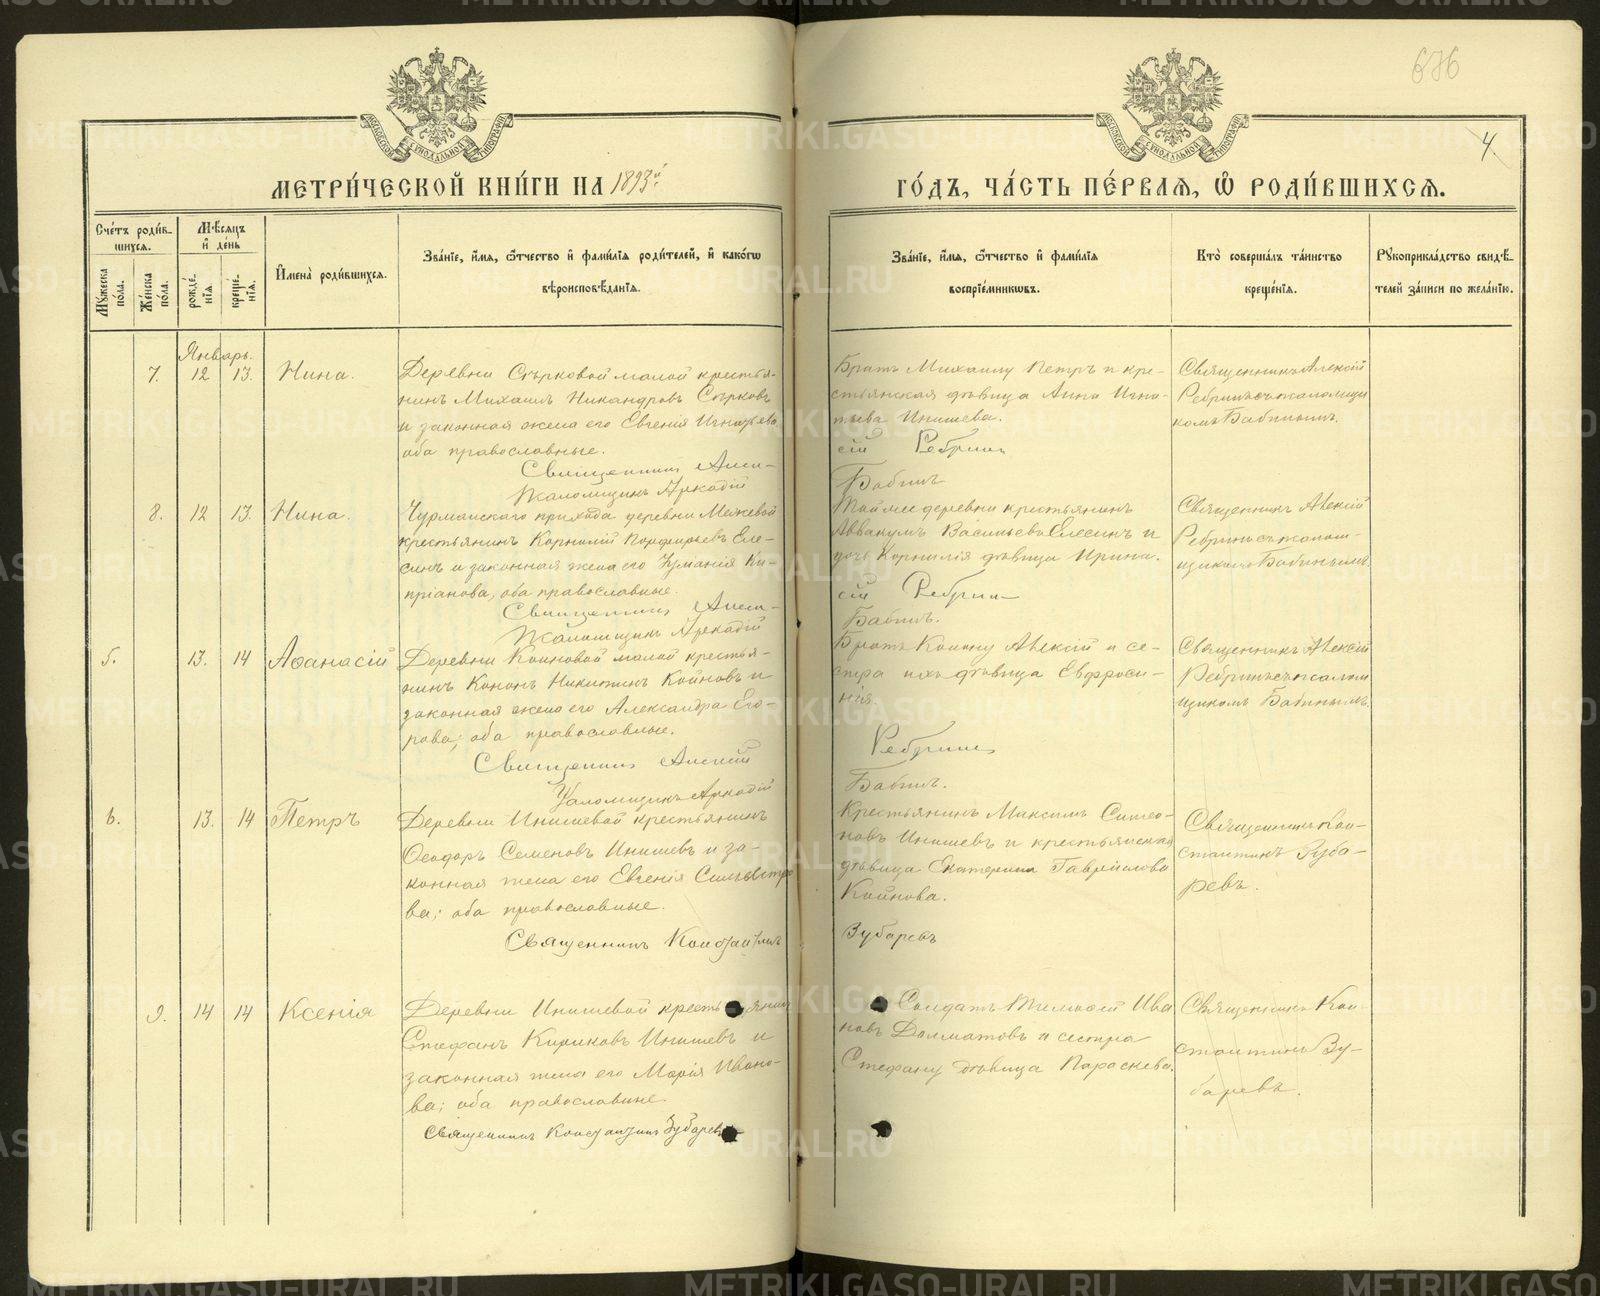 676
4
МЕТРИ́ЧЕСКОЙ КНИ́ГИ НА 1893й
ГО́ДЪ, ЧА́СТЬ ПЕ́РВАЯ, Ѡ РОДИ́ВШИХСЯ.
Сче́тъ роди́вшихся.
Мѣ́сяцъ и҆ де́нь
Му́жеска по́ла.
Же́нска по́ла.
рожде́нїя.
креще́нїя.
И҆мена̀ роди́вшихся.
Зва́нїе, и҆́мя, ѻ҆́тчество и҆ фами́лїя роди́телей, и҆ како́гѡ
вѣроисповѣ́данїя.
Зва́нїе, и҆́мя, ѻ҆́тчество и҆ фами́лїя
воспрїе́мникѡвъ.
Кто̀ соверша́лъ та́инство
креще́нїя.
Рꙋкоприкла́дство свидѣ́-
телей за́писи по жела́нїю.
Январь.
7. 12 13. Нина.
Деревни Сърковой малой крестья-
нинъ Михаилъ Никандровъ Сърковъ
и законная жена его Евгенія Игнатьева
оба православные.
Священникъ Алек-
Псаломщикъ Аркадій
Братъ Михаилу Петръ и кре-
стьянская дѣвица Анна Игна-
тьева Инишева.
сій Ребринъ
Бабинъ
Священникъ Алексій
Ребринъ съ псаломщи
комъ Бабинымъ.
8. 12 13. Нина.
Чурманскаго прихода деревни Межевой
крестьянинъ Корнилій Порфирьевъ Еле-
синъ и законная жена его Ки-
пріанова, оба православные.
Священникъ Алек-
Псаломщикъ Аркадій
Той же деревни крестьянинъ
Аввакумъ Васильевъ Елесинъ и
дочь Корнилія дѣвица Ирина.
сій Ребринъ
Бабинъ.
Священникъ Алексій
Ребринъ съ псалом-
щикомъ Бабинымъ
5. 13. 14 Аѳанасій
Деревни Койновой малой крестья-
нинъ Кононъ Никитинъ Койновъ и
законная жена его Александра Его-
рова; оба православные.
Священникъ Алексій
Псаломщикъ Аркадій
Братъ Конону Алексій и се-
стра ихъ дѣвица Евфроси-
нія.
Ребринъ
Бабинъ.
Священникъ Алексій
Ребринъ съ псалом
щикомъ Бабинымъ.
6. 13. 14 Петръ
Деревни Инишевой крестьянинъ
Ѳеодоръ Семеновъ Инишевъ и за-
конная жена его Евгенія Сильвестро
ва; оба православные.
Священникъ Константинъ
Крестьянинъ Максимъ Симео-
новъ Инишевъ и крестьянская
дѣвица Екатерина Гавріилова
Койнова.
Зубаревъ
Священникъ Кон-
стантинъ Зуба-
ревъ.
9. 14 14 Ксенія
Деревни Инишевой крестьянинъ
Стефанъ Кириковъ Инишевъ и
законная жена его Марія Ивано-
ва; оба православные
Священникъ Константинъ Зубаревъ
Солдатъ Тимофей Ива
новъ Долматовъ и сестра
Стефану дѣвица Параскева.
Священникъ Кон-
стантинъ Зу-
баревъ.
METRIKI.GASO-URAL.RU